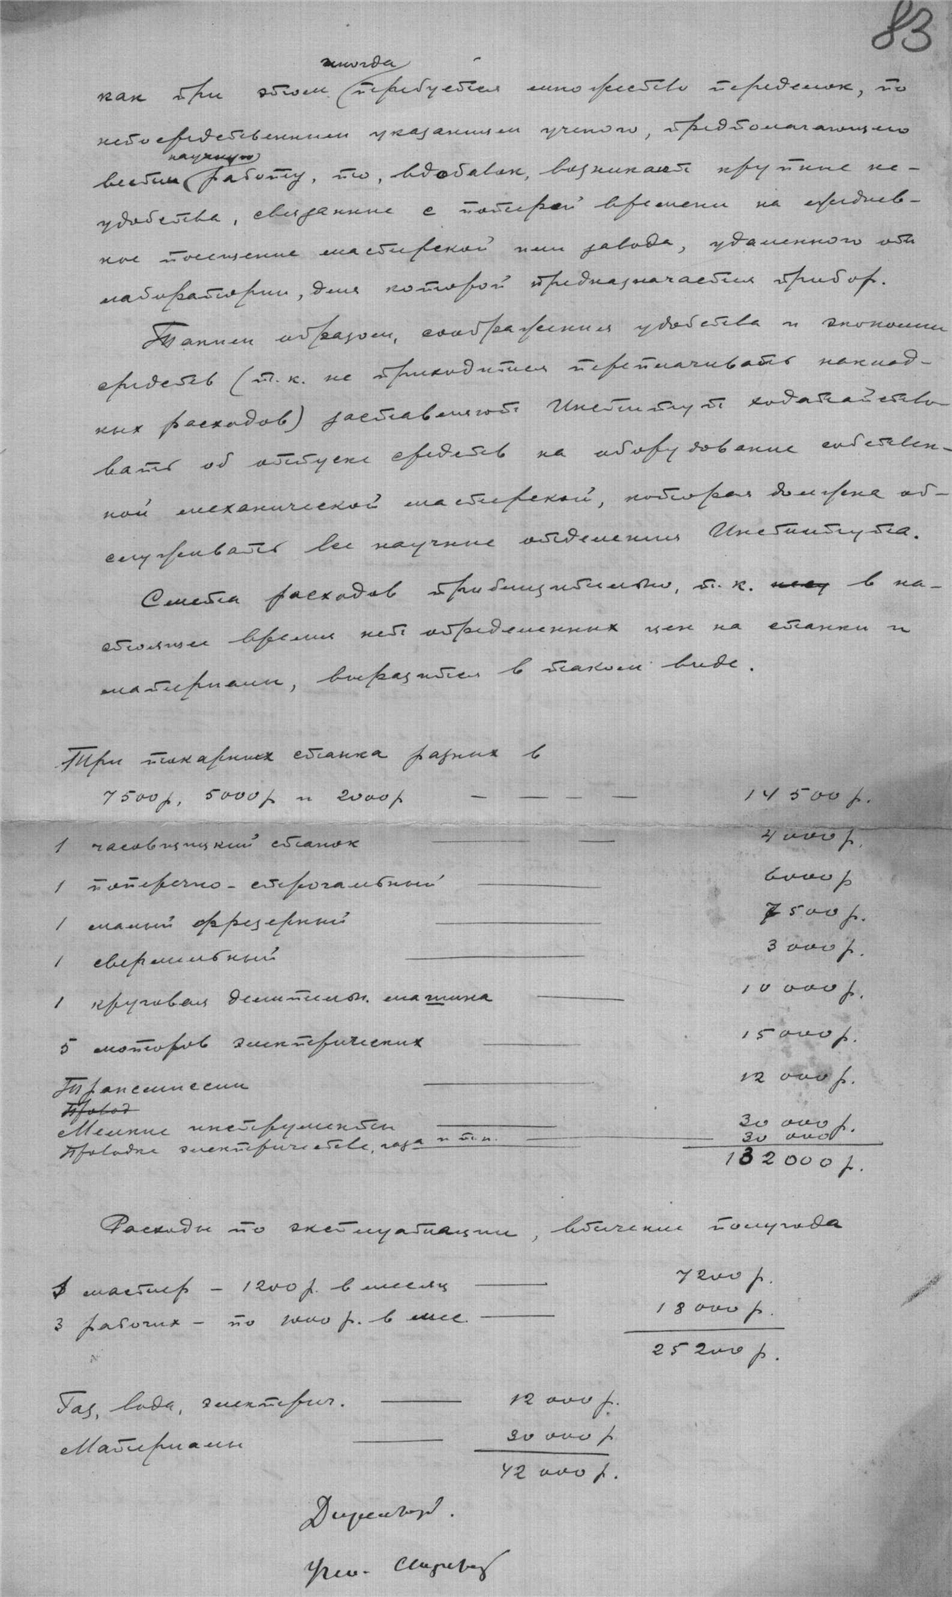 83
иногда
как при этом требуется множество переделок, по
непосредственным указаниям ученого, предполагающего
научную
вести работу, то, вдобавок, возникают крупные не-
удобства, связанные с потерей времени на ежеднев-
ное посещение мастерской или завода, удаленного от
лаборатории, для которой предназначается прибор.
Таким образом, соображения удобства и экономии
средств (т.к. не приходится переплачивать наклад-
ных расходов) заставляют Институт ходатайство-
вать об отпуске средств на оборудование собствен-
ной механической мастерской, которая должна об-
служивать все научные отделения Института.
Смета расходов приблизительно, т.к. в на-
стоящее время нет определенных цен на станки и
материалы, выразится в таком виде.
Три токарных станка разных в
7500р, 5000р и 2000р — — — — 14 500 р.
1 часовщицкий станок — — 4000 р.
1 поперечно-строгальный — 6000 р
1 малый фрезерный — 7500 р.
1 сверлильный — 3000 р.
1 круговая делительн. машина — 10 000 р.
5 моторов электрических — 15000 р.
Трансмиссии — 12 000 р.
Провод
Мелкие инструменты — 30 000 р.
Проводка электричества, газа и т.п. — 30 000
132000 р.
Расходы по эксплуатации, втечение полугода
1 мастер - 1200 р. в месяц — 7200 р.
3 рабочих - по 1000 р. в мес. — 18000 р.
25 200 р.
Газ, вода, электрич. — 12 000 р.
Материалы — 30 000 р
42 000 р.
Директор.
Учен.